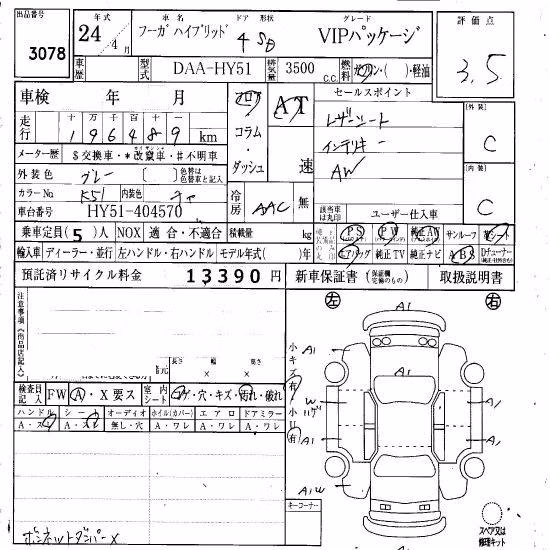 出品番号 3078
年式 24年 4月
車名 フーガ ハイブリッド
ドア 形状 4 SD
グレード VIPパッケージ
評価点 3.5
車歴
型式 DAA-HY51
排気量 3500 c.c.
燃料 ガソリン・( )・軽油
車検 年 月
フロア コラム・ダッシュ
AT 速
セールスポイント
レザーシート
インテリキー
AW
外装 C
内装 C
走行 十万千百十 196489 km
メーター歴 $交換車・*改竄車・#不明車
外装色 グレー ( ) 色替は色替車と記入
カラーNo. K51 内装色
車台番号 HY51-404570
冷房 AAC 無
該当車は丸印
ユーザー仕入車
乗車定員(5)人 NOX 適合・不適合 積載量 kg
PS PW 純正AW サンルーフ 革シート
輸入車 ディーラー・並行 左ハンドル・右ハンドル モデル年式( )年
エアバッグ 純正TV 純正ナビ ABS Dチューナー
預託済リサイクル料金 13390円
新車保証書 (保証欄完備のもの) 取扱説明書
注意事項(出品店記入)
長さ 幅 高さ
× ×
左 右
A1
小キズ有 A1 A1
W A1
小凹有 A1 A1
A1W A1
検査員記入 FW A・X要ス 室内シート コゲ・穴・キズ・汚れ・破れ
ハンドル シート オーディオ ホイル(カバー) エアロ ドアミラー
A・スレ A・スレ 無し・穴 A・ワレ A・ワレ A・ワレ
キーコーナー
ボンネットダンパーX
スペア又は修理キット